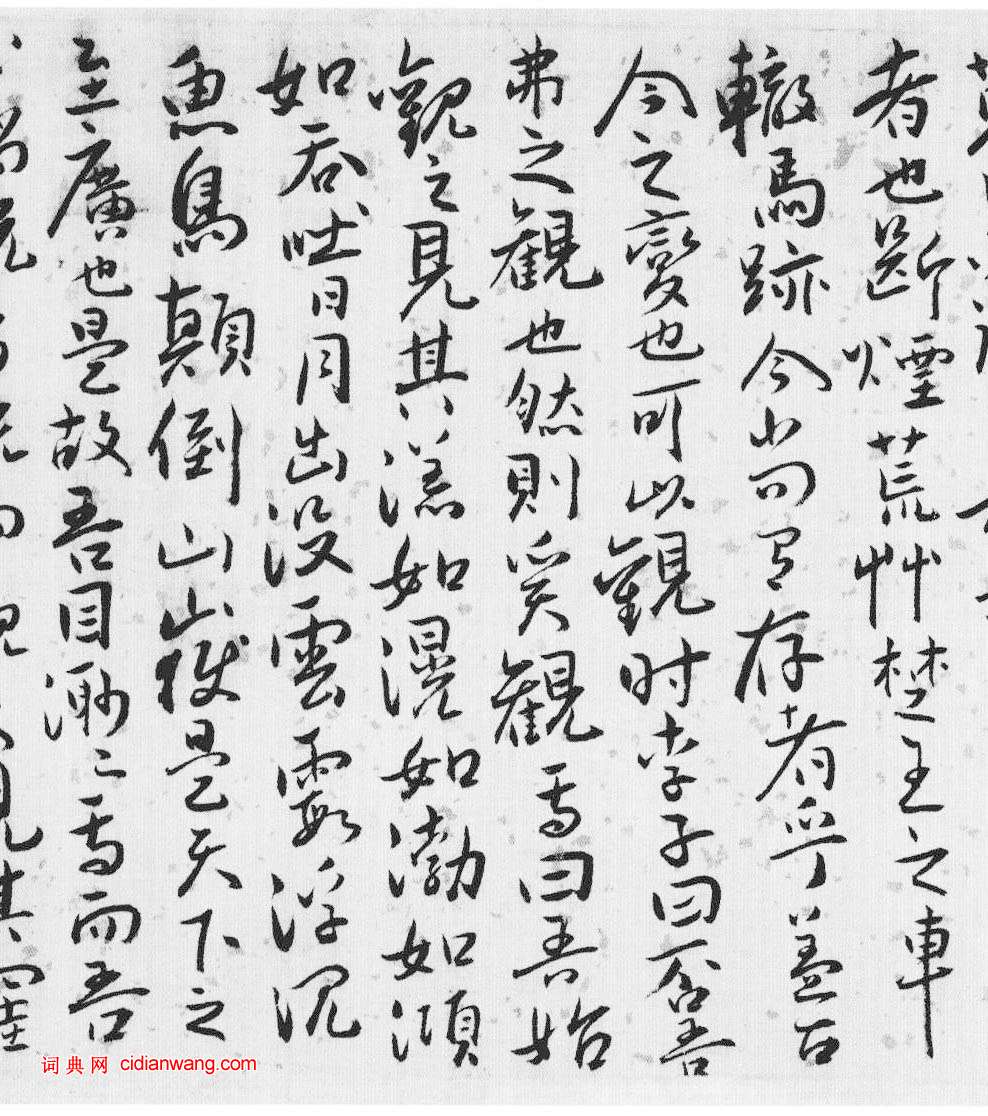 者也斷煙荒艸楚王之車
轍馬跡今尚有存者乎蓋古
今之變也可以觀时李子曰否吾
弗之觀也然則奚觀焉曰吾始
觀之見其漾如滉如渤如澒
如吞吐日月出沒雲霞浮沉
魚鳥顛倒山嶽是天下之
至廣也是故吾目渺〻焉而吾
词典网 cidianwang.com